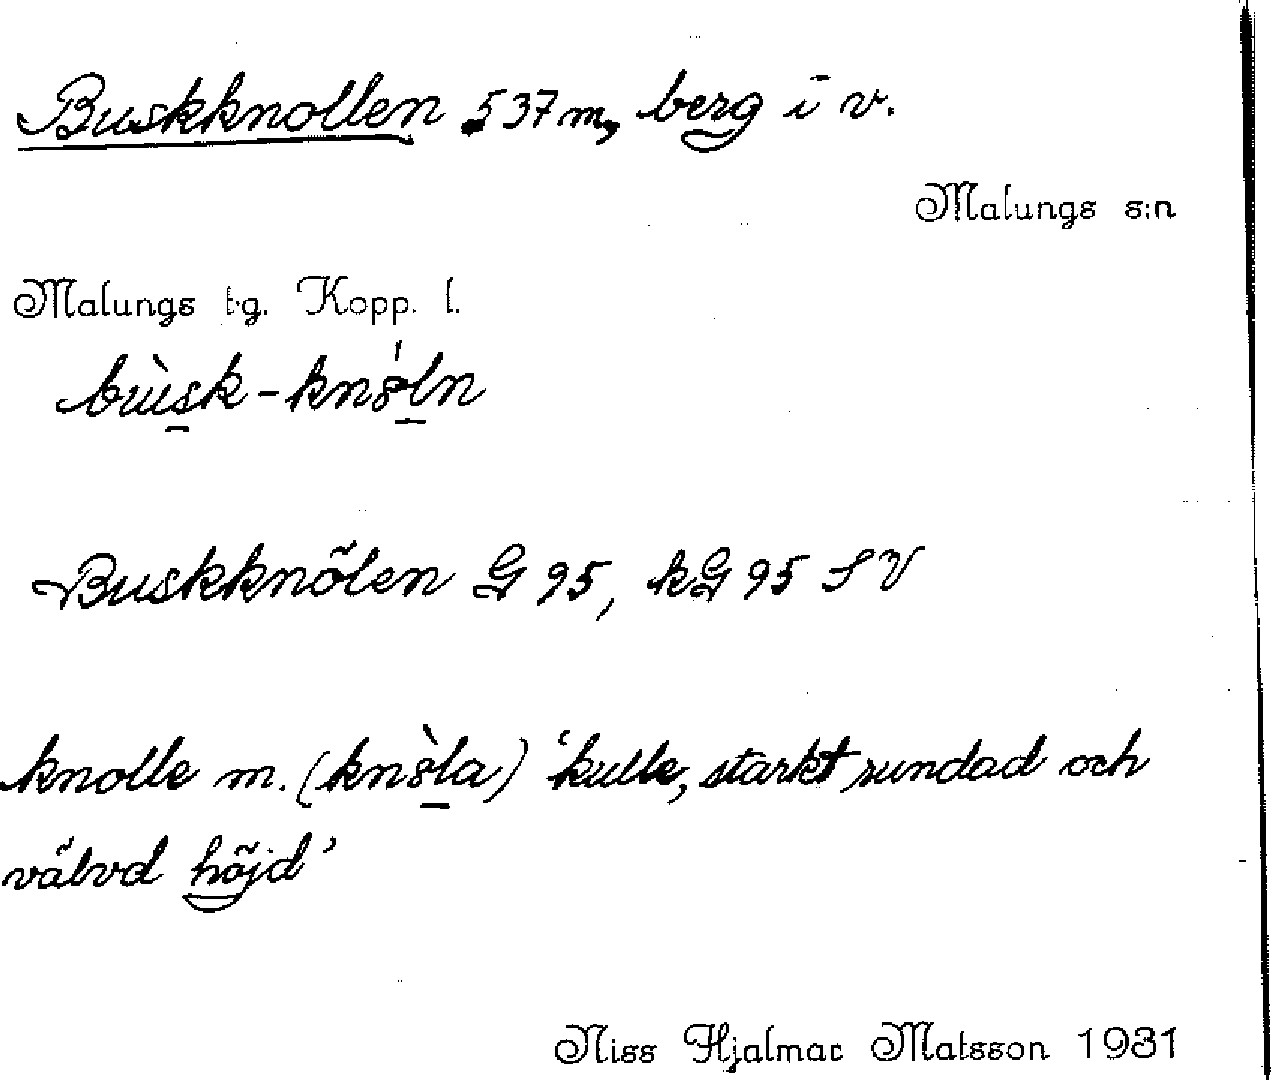 Buskknollen 537 m, berg i v.
Malungs s:n
Malungs tg. Kopp. l.
bùsk-knó̵ln
Buskknölen G 95, kG 95 SV
knolle m. (knò̵la) 'kulle, starkt rundad och
välvd höjd'
Niss Hjalmar Matsson 1931